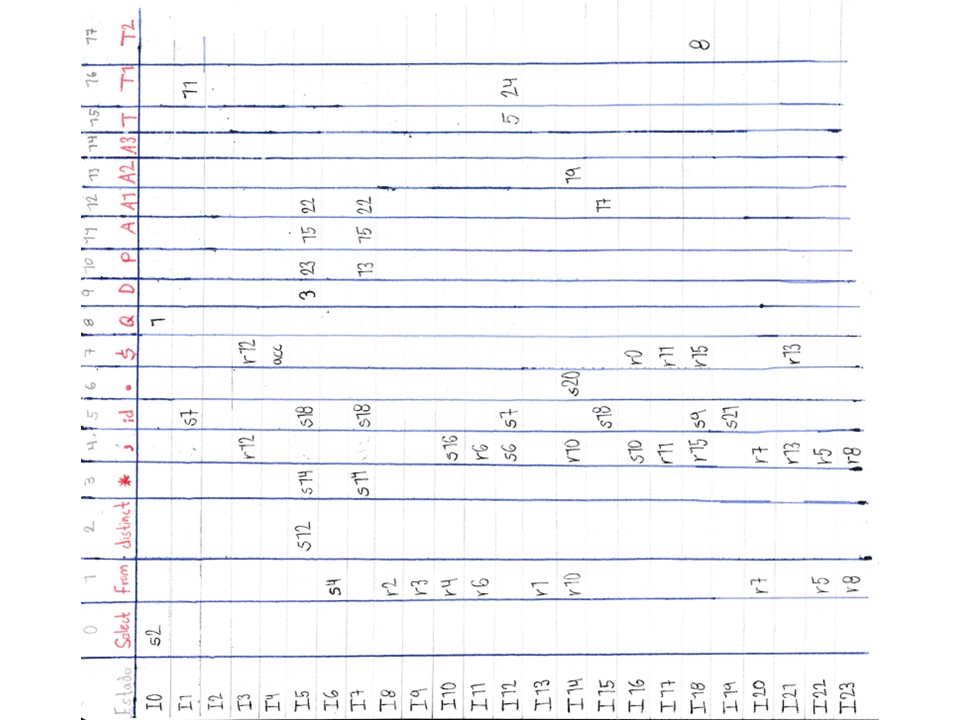 0 1 2 3 4. 5 6 7 8 9 10 11 12 13 14 15 16 17
Estado Select from distinct * ; id . $ Q D P A A1 A2 A3 T T1 T2
I0 s2 1
I1 s7 11
I2
I3 r12 r12
I4 acc
I5 s12 s14 s18 3 23 15 22
I6 s4
I7 s14 s18 13 15 22
I8 r2
I9 r3
I10 r4 s16
I11 r6 r6
I12 s6 s7 5 24
I13 r1
I14 r10 r10 s20 19
I15 s18 17
I16 s10 r0
I17 r11 r11
I18 r15 s9 r15 8
I19 s21
I20 r7 r7
I21 r13 r13
I22 r5 r5
I23 r8 r8